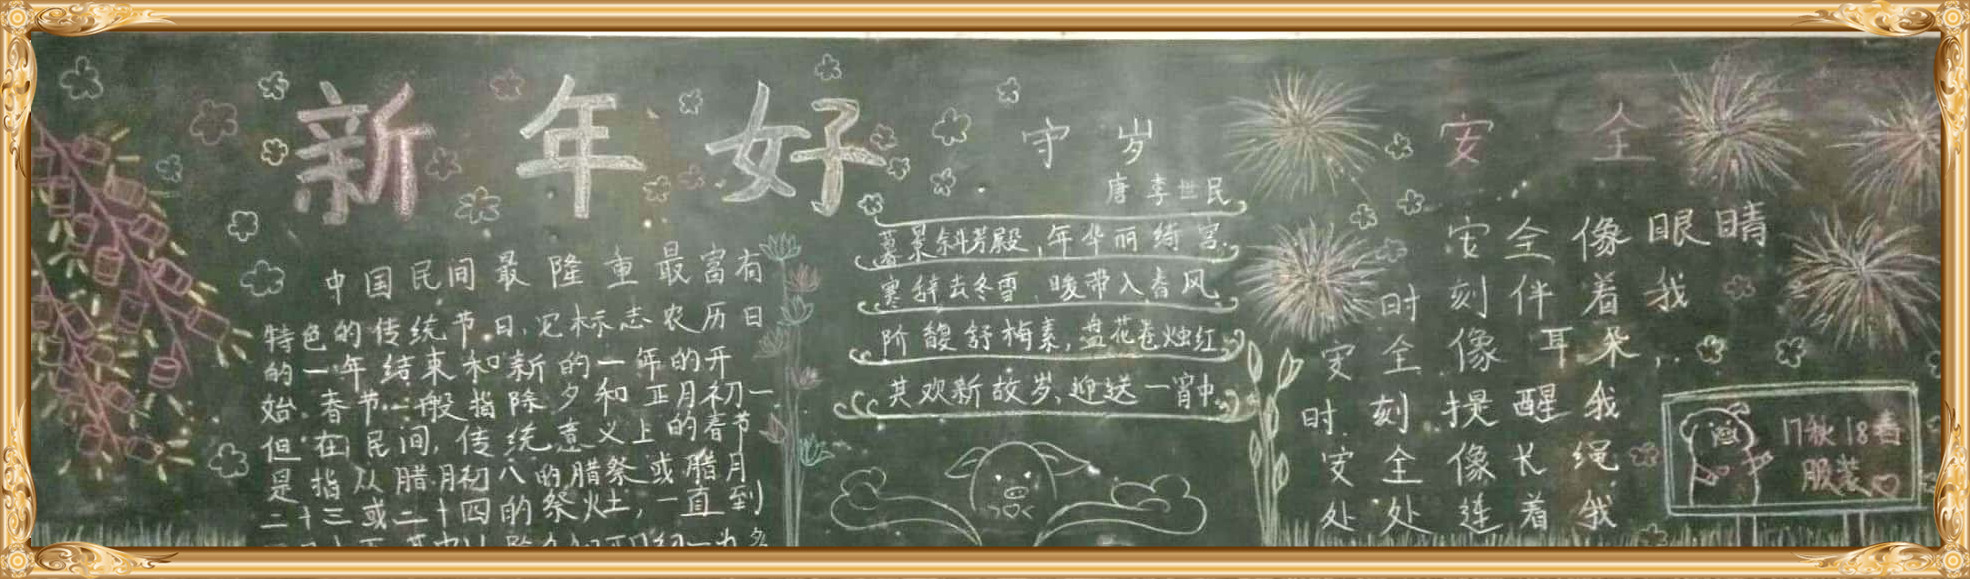 新年好
中国民间最隆重最富有
特色的传统节日,它标志农历日
的一年结束和新的一年的开
始.春节一般指除夕和正月初一
但在民间,传统意义上的春节
是指从腊月初八的腊祭或腊月
二十三或二十四的祭灶,一直到
守岁
唐 李世民
暮景斜芳殿,年华丽绮宫.
寒辞去冬雪,暖带入春风
阶馥舒梅素,盘花卷烛红
共欢新故岁,迎送一宵中.
安全
安全像眼睛
时刻伴着我
安全像耳朵,
时刻提醒我
安全像长绳
处处连着我
17秋18春
服装